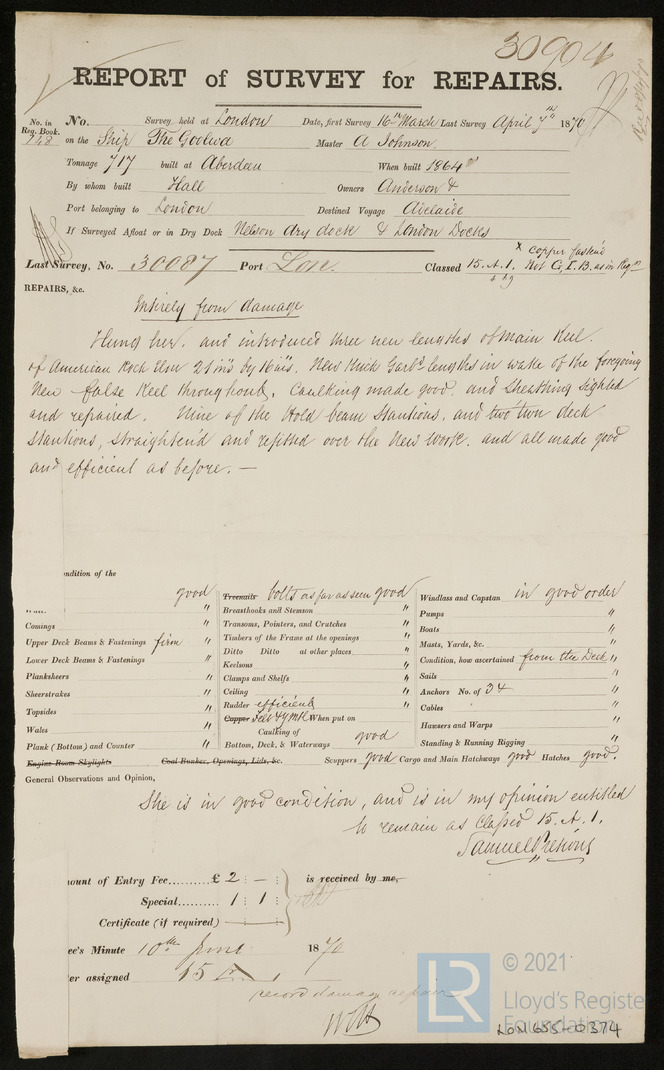 30904
REPORT of SURVEY for REPAIRS.
No. in Reg. Book. No. Survey held at London Date, first Survey 16th March Last Survey April 7th 1870
748 on the Ship The Goolwa Master A Johnson
Tonnage 717 built at Aberdeen When built 1864
By whom built Hall Owners Anderson &
Port belonging to London Destined Voyage Adelaide
If Surveyed Afloat or in Dry Dock Nelson dry dock & London Docks
x Copper fasten'd
Last Survey, No. 30087 Port Lon. Classed 15. A. 1. Not C. I. B. as in Regr
REPAIRS, &c.
Entirely from damage
Hung her, and introduced three new lengths of Main Keel.
of American Rock Elm 21 ins by 16 ins. New thick Garbd lengths in wake of the foregoing
New false Keel throughout, Caulking made good, and Sheathing sighted
and repaired. Nine of the Hold beam Stantions, and two twn deck
Stantions, straighten'd and refitted over the New Work, and all made good
and efficient as before. —
ndition of the
good Treenails bolts as far as seen good Windlass and Capstan in good order
" Breasthooks and Stemson " Pumps "
Comings " Transoms, Pointers, and Crutches " Boats "
Upper Deck Beams & Fastenings firm " Timbers of the Frame at the openings " Masts, Yards, &c. "
Lower Deck Beams & Fastenings " Ditto Ditto at other places " Condition, how ascertained from the Deck "
Planksheers " Keelsons " Sails "
Sheerstrakes " Clamps and Shelfs " Anchors No. of 34 "
Topsides " Ceiling " Cables "
Wales " Rudder efficient " Hawsers and Warps "
Plank (Bottom) and Counter " Copper When put on Standing & Running Rigging "
Caulking of
Bottom, Deck, & Waterways good
Engine Room Skylights Coal Bunker, Openings, Lids, &c. Scuppers good Cargo and Main Hatchways good Hatches good.
General Observations and Opinion,
She is in good condition, and is in my opinion entitled
to remain as Classed 15. A. 1.
Samuel Pretious
ount of Entry Fee £ 2 : — : is received by me,
Special 1 : 1 :
Certificate (if required)
ee's Minute 10th June 1870
er assigned 15 A 1
record damage repair
© 2021
LR
Lloyd's Register
Foundation
LON655-0374